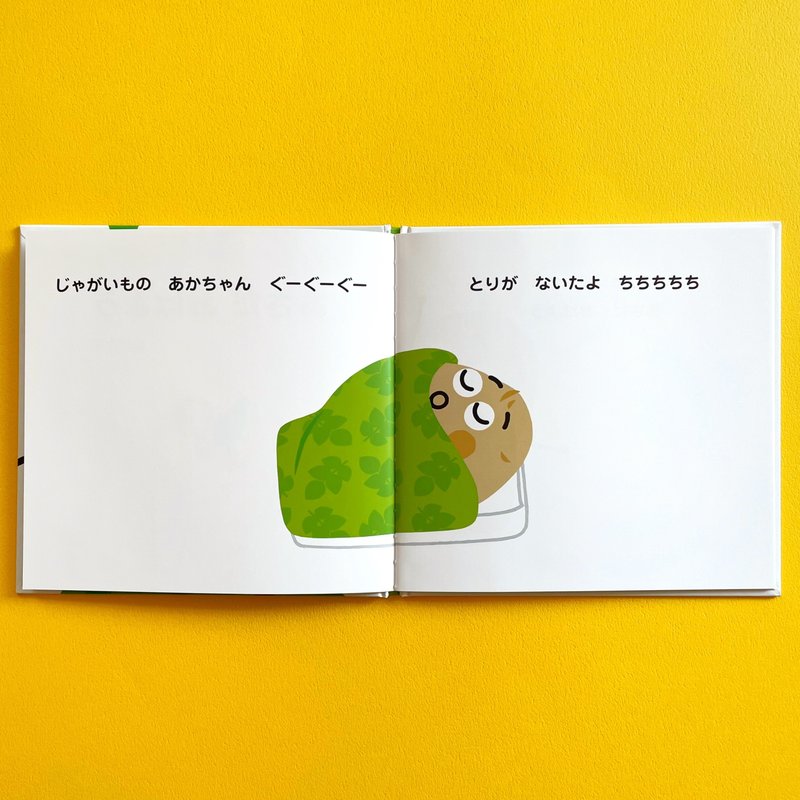 じゃがいもの　あかちゃん　ぐーぐーぐー
とりが　ないたよ　ちちちちち